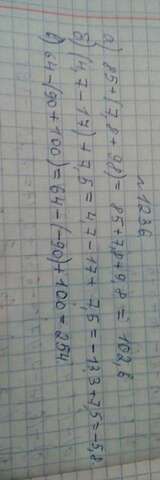 №1236
а) 85+(7,8+9,8)=85+7,8+9,8=102,6
б) (4,7-17)+7,5=4,7-17+7,5=-13,3+7,5=-5,8
в) 64-(90+100)=64-(-90)+100=254